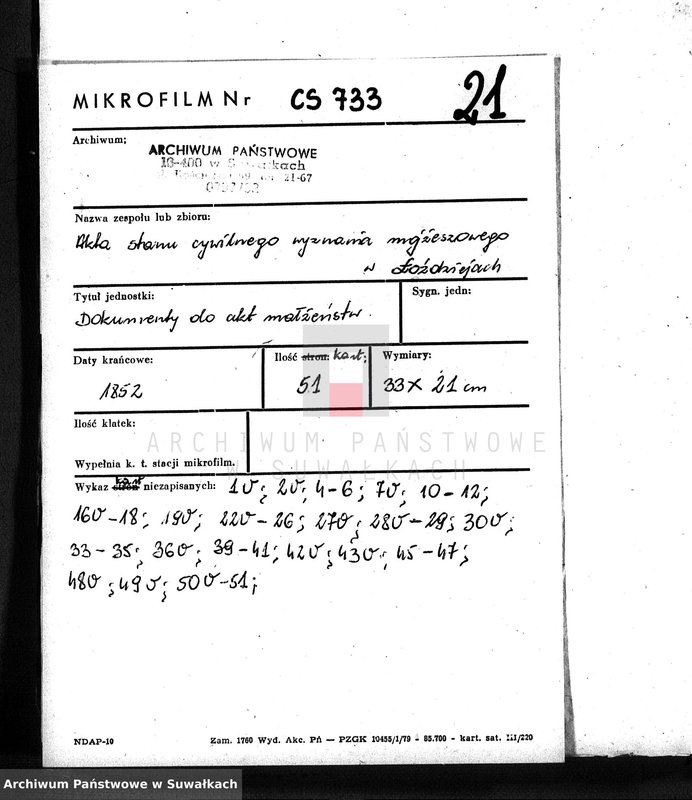 MIKROFILM Nr CS 733 21
Archiwum;
ARCHIWUM PAŃSTWOWE
16-400 w Suwałkach
21-67
Nazwa zespołu lub zbioru:
Akta stanu cywilnego wyznania mojżeszowego
w Łoździejach
Tytuł jednostki:
Sygn. jedn:
Dokumenty do akt małżeństw.
Daty krańcowe:
Ilość stron: kart;
Wymiary:
1852
51
33 x 21 cm
Ilość klatek:
ARCHIWUM PAŃSTWOWE
W SUWAŁKACH
Wypełnia k. t. stacji mikrofilm.
Wykaz stron kart niezapisanych: 1v; 2v; 4-6; 7v; 10-12;
16v-18; 19v; 22v-26; 27v; 28v-29; 30v;
33-35; 36v; 39-41; 42v; 43v; 45-47;
48v; 49v; 50v-51;
NDAP-10
Zam. 1760 Wyd. Akc. PŃ — PZGK 10455/I/79 - 85.700 - kart. sat. III/220
Archiwum Państwowe w Suwałkach